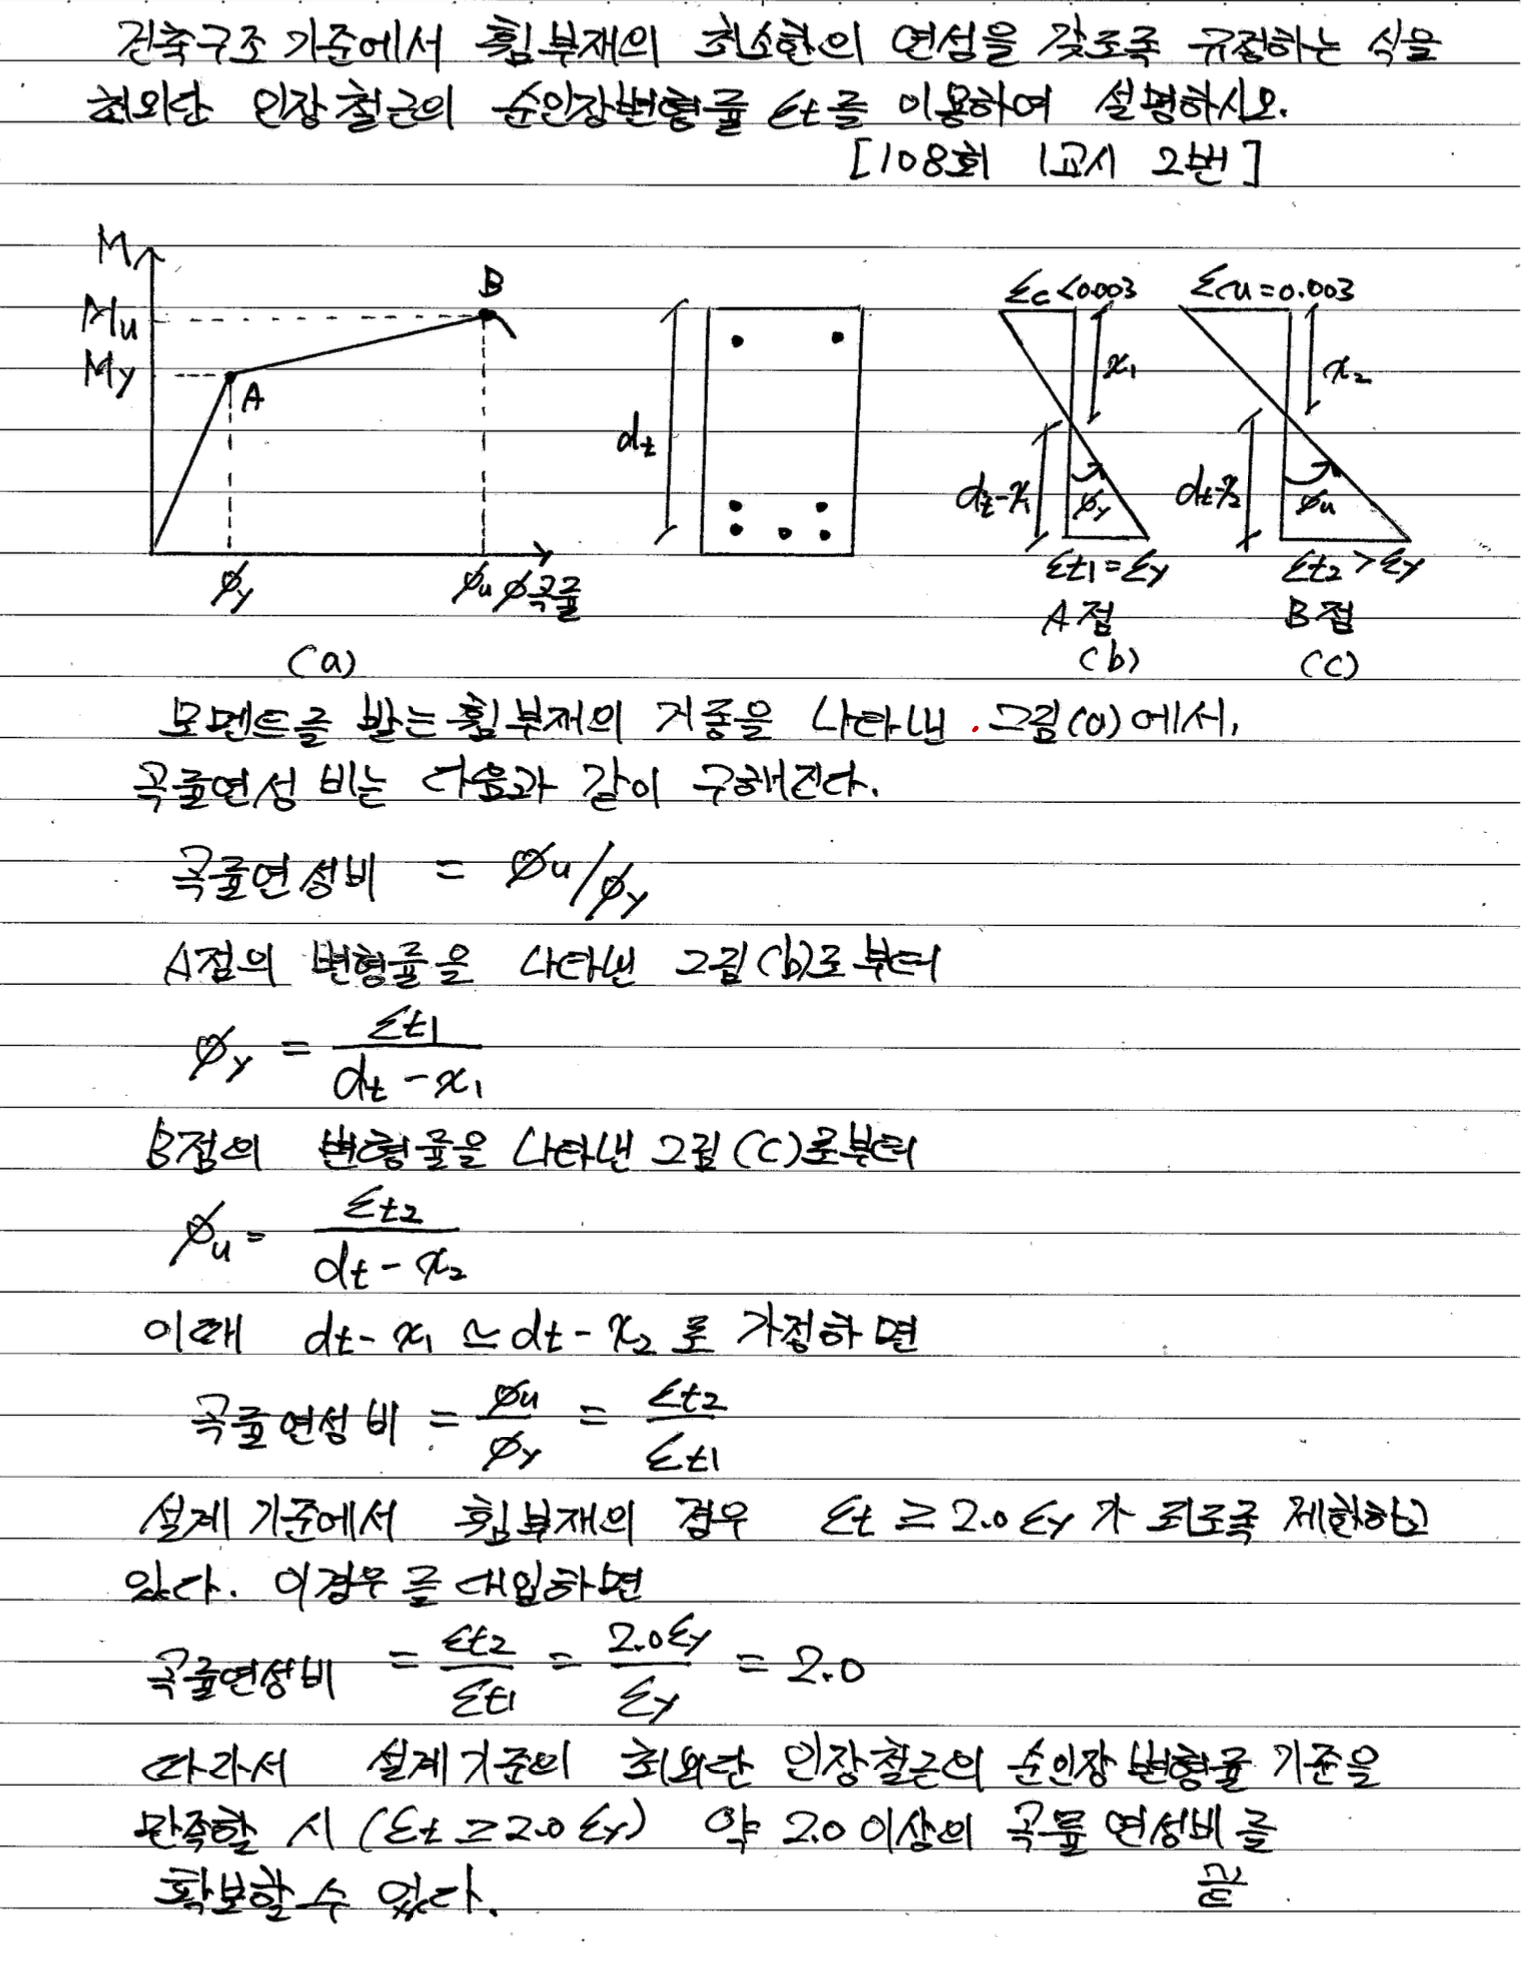 건축구조 기준에서 휨부재의 최소한의 연성을 갖도록 규정하는 식을
최외단 인장철근의 순인장변형률 εt를 이용하여 설명하시오.
[108회 1교시 2번]
M
Mu
My
A
B
φy
φu φ곡률
(a)
dt
εc<0.003
x1
dt-x1
φy
εt1=εy
A점
(b)
εcu=0.003
x2
dt-x2
φu
εt2>εy
B점
(c)
모멘트를 받는 휨부재의 거동을 나타낸 그림(a)에서,
곡률연성비는 다음과 같이 구해진다.
곡률연성비 = φu/φy
A점의 변형률을 나타낸 그림(b)로부터
φy = εt1 / (dt - x1)
B점의 변형률을 나타낸 그림(c)로부터
φu = εt2 / (dt - x2)
이때 dt - x1 ≃ dt - x2 로 가정하면
곡률연성비 = φu/φy = εt2/εt1
설계기준에서 휨부재의 경우 εt ≥ 2.0εy 가 되도록 제한하고
있다. 이경우를 대입하면
곡률연성비 = εt2/εt1 = 2.0εy/εy = 2.0
따라서 설계기준의 최외단 인장철근의 순인장변형률 기준을
만족할 시 (εt ≥ 2.0 εy) 약 2.0 이상의 곡률연성비를
확보할 수 있다. 끝